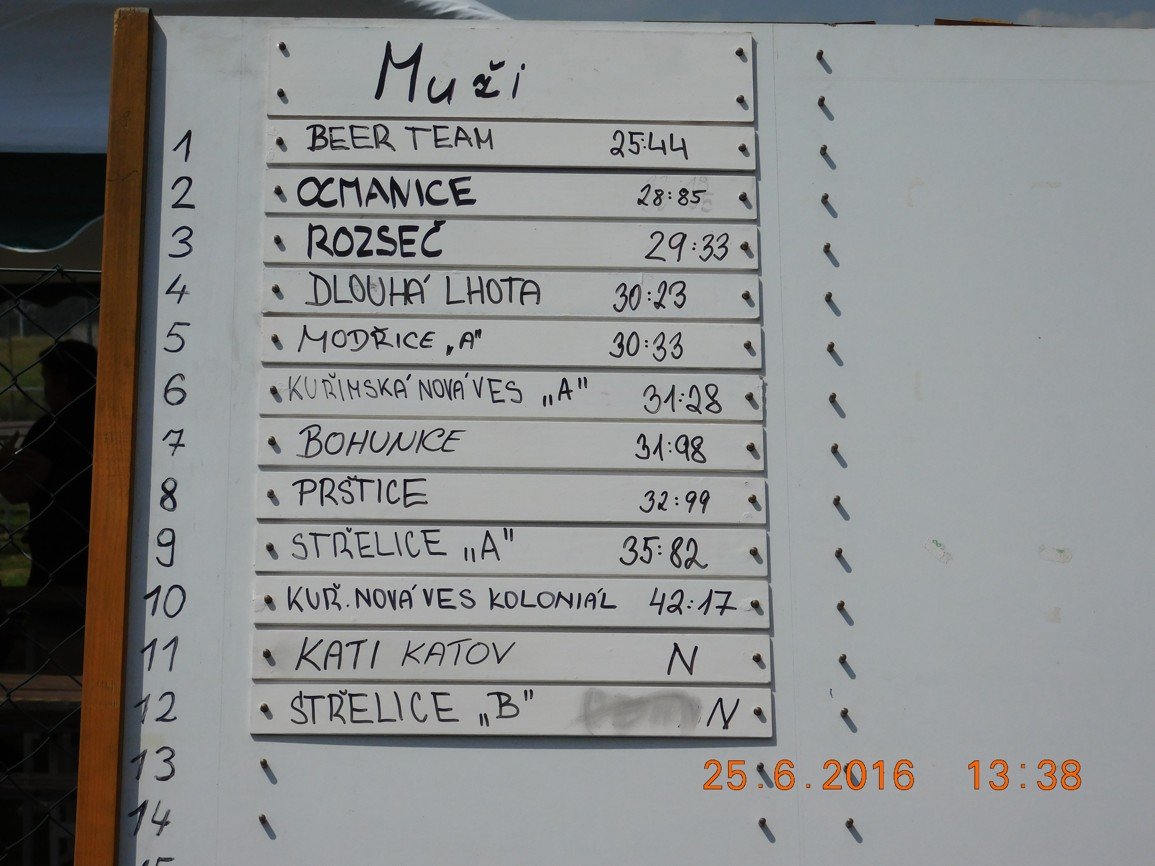 Muži
1 BEER TEAM 25:44
2 OCMANICE 28:85
3 ROZSEČ 29:33
4 DLOUHÁ LHOTA 30:23
5 MODŘICE „A" 30:33
6 KUŘIMSKÁ NOVÁ VES „A" 31:28
7 BOHUNICE 31:98
8 PRŠTICE 32:99
9 STŘELICE „A" 35:82
10 KUŘ. NOVÁ VES KOLONIÁL 42:17
11 KATI KATOV N
12 STŘELICE „B" N
13
14
15
25.6.2016 13:38